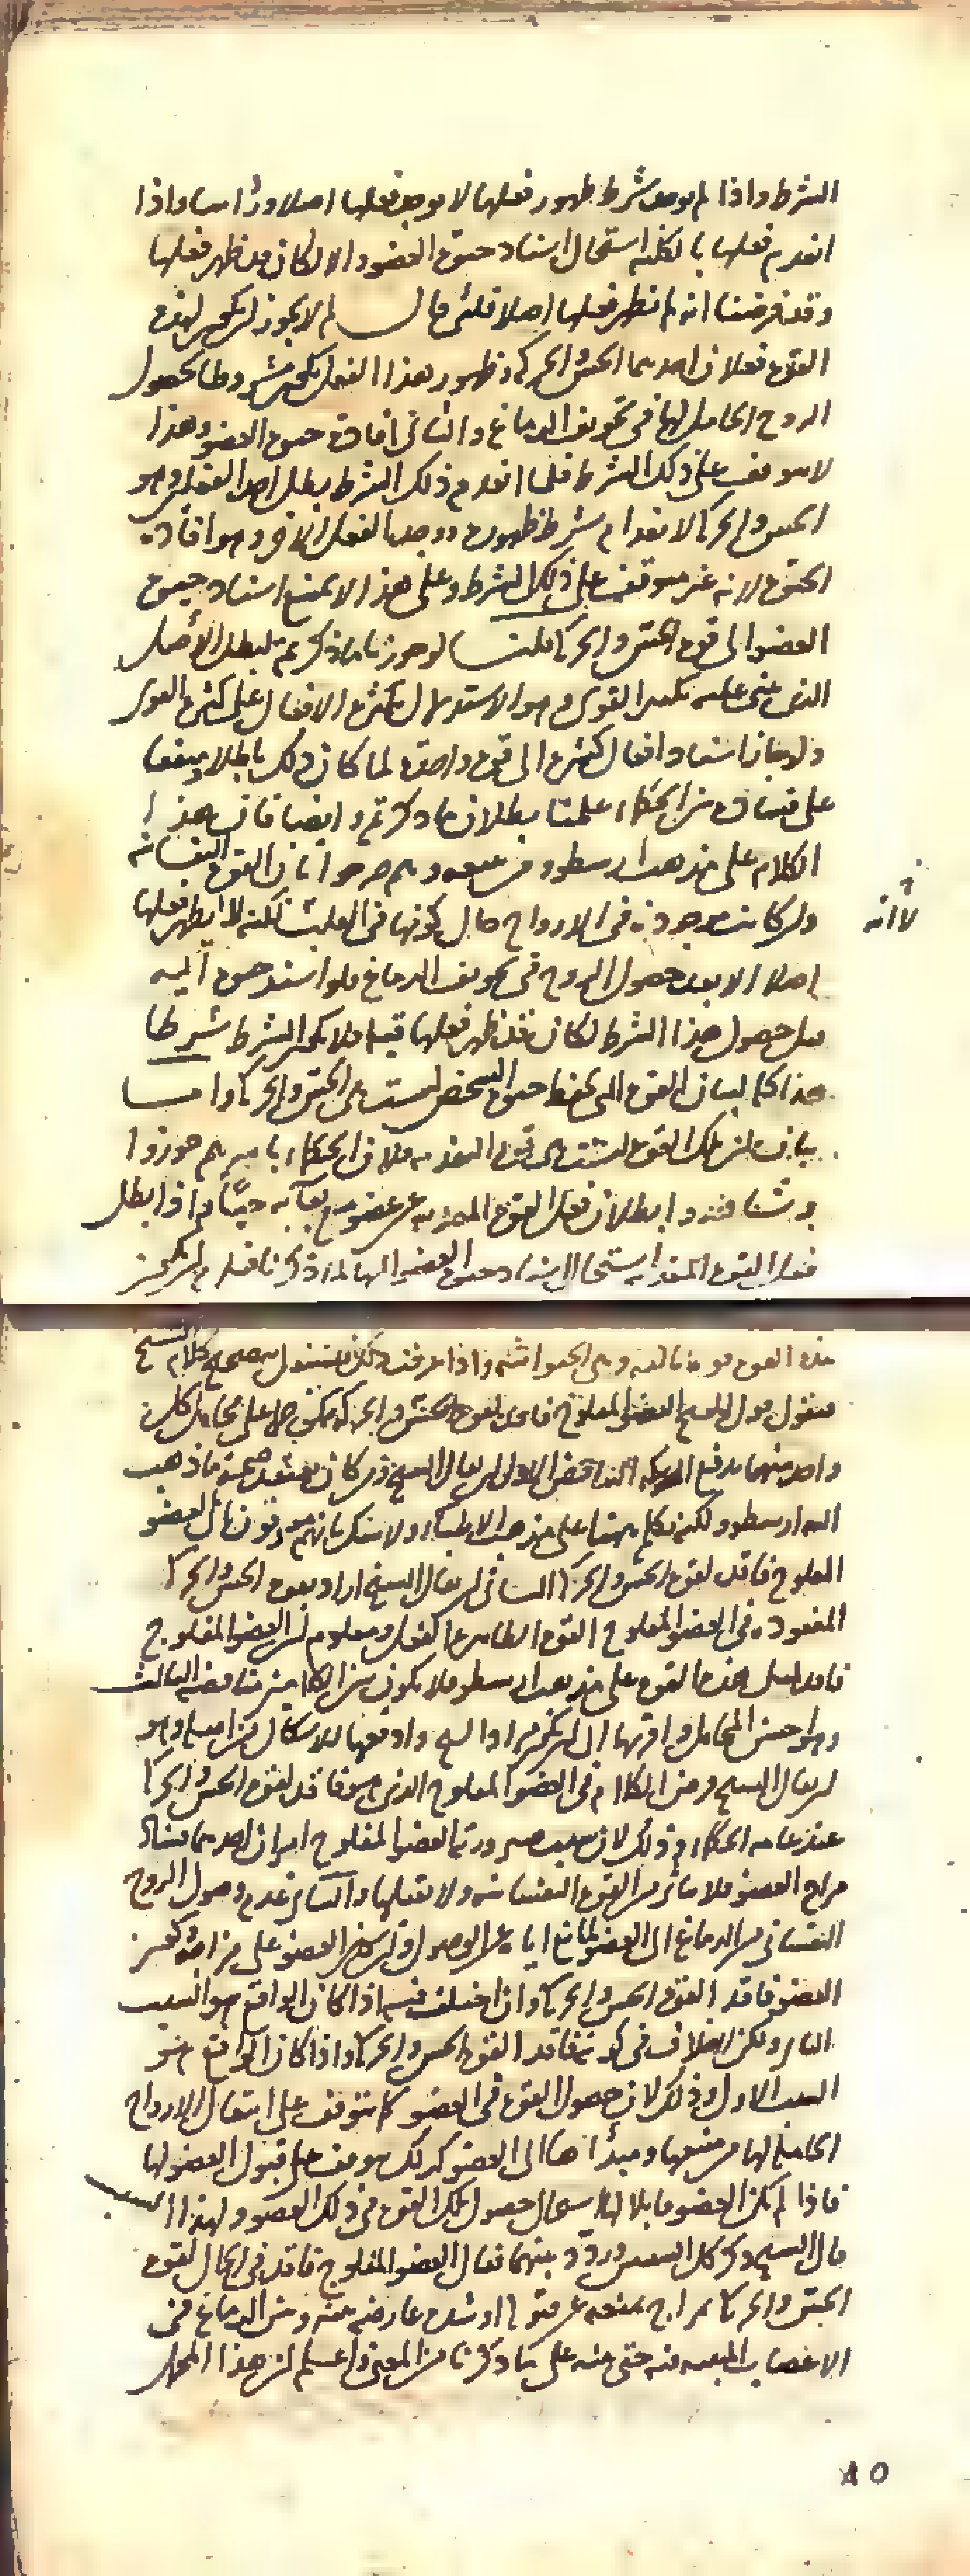 الشرط واذا لم يوجد شرط ظهور فعلها لا يوجد فعلها اصلا ورأسا واذا
انعدم فعلها بالكلية استحال اسناد حيوة العضو والا لكان قد ظهر فعلها
وقد فرضنا انه لم يظهر فعلها اصلا فلئن قال لم لا يجوز ان يكون لهذه
القوة فعلان احدهما الحس والحركة وظهور هذا الفعل يكون مشروطا بحصول
الروح الحامل لها في تجويف الدماغ والثاني افادة حيوة العضو وهذا
لا يتوقف على ذلك الشرط فلما انعدم ذلك الشرط بطل احد الفعلين وهو
الحس والحركة لانعدام شرط ظهوره ووجد الفعل الاخر وهو افادة
الحيوة لانه غير متوقف على ذلك الشرط وعلى هذا لا يمتنع اسناد حيوة
العضو الى قوة الحس والحركة قلنا لو جوزنا ما ذكرتم لبطل الأصل
الذي بني عليه تكثير القوى وهو الاستدلال بكثرة الافعال على كثرة القوى
ولا جاز اسناد افعال كثيرة الى قوة واحدة لما كان ذلك باطلا متفقا
على فساده من الحكماء علمنا بطلان ما ذكرتم وايضا فان هذا
الكلام على مذهب ارسطو ومن تبعه وهم صرحوا بان القوة النفسانية
وان كانت موجودة في الارواح حال كونها في القلب لكنه لا يظهر فعلها
لأنه
اصلا الا بعد حصول الروح في تجويف الدماغ فلو استند حيوة اليه
قبل حصول هذا الشرط لكان قد ظهر فعلها قبله فلا يكون الشرط شرطا
هذا كله لبيان القوة التي تحفظ حيوة الشخص ليست هي الحس والحركة واما
بيان ان تلك القوة ليست هي قوة التغذية فلان الحكماء باسرهم جوزوا
وشاهدوا بطلان فعل القوة المغذية عن عضو مع بقائه حيا واذا بطل
فعل القوة المغذية استحال اسناد حيوة العضو اليها لما ذكرنا فلا بد ان يكون
هذه القوة قوة ثالثة وهي الحيوانية واذا عرفت ذلك فنقول تصحيح كلام الشيخ
فنقول قول الشيخ العضو المفلوج فاقد لقوة الحس والحركة يمكن حمله على محامل كل
واحد منها يدفع التناقض الاول ان يقال الشيخ وان كان يعتقد صحة ما ذهب
اليه ارسطو ولكنه تكلم ههنا على مذهب الاطباء ولا شك بانهم معترفون بان العضو
المفلوج فاقد لقوة الحس والحركة الثاني ان يقال الشيخ اراد بقوة الحس والحركة
المفقودة في العضو المفلوج القوة الظاهرة الفعل ومعلوم ان العضو المفلوج
فاقد لمثل هذه القوة على مذهب ارسطو فلا يكون بين الكلامين مناقضة الثالث
وهو احسن المحامل واقربها الى ان يكون مراد الشيخ وادفعها للاشكال من اصله وهو
ان يقال الشيخ فرض الكلام في العضو المفلوج الذي هو فاقد لقوة الحس والحركة
عند عامة الحكماء وذلك لان سبب صيرورة العضو المفلوج امران احدهما فساد
مزاج العضو فلا يتاثر من القوة النفسانية ولا يقبلها والثاني عدم وصول الروح
النفساني من الدماغ الى العضو لمانع اياه عن الوصول وان كان العضو على مزاجه وكون
العضو فاقد القوة الحس والحركة وان اختلف فيه اذا كان الواقع هو السبب
الثاني ولكن لا خلاف في كونه فاقد القوة الحس والحركة اذا كان الواقع هو
السبب الاول وذلك لان حصول القوة في العضو كما يتوقف على انتقال الارواح
الحاملة لها من منبعها ومبدأها الى العضو كذلك يتوقف على قبول العضو لها
فاذا لم يكن العضو قابلا لها استحال حصول تلك القوة في ذلك العضو ولهذا السبب
قال الشيخ ذكر كل السببين وردد بينهما فقال العضو المفلوج فاقد في الحال لقوة
الحس والحركة لمزاج يمنعه عن قبوله او شدة عارضة بينه وبين الدماغ في
الاعصاب المنبعثة منه حتى منه على ما ذكرنا من المعنى واعلم ان هذا المحل
٨٥